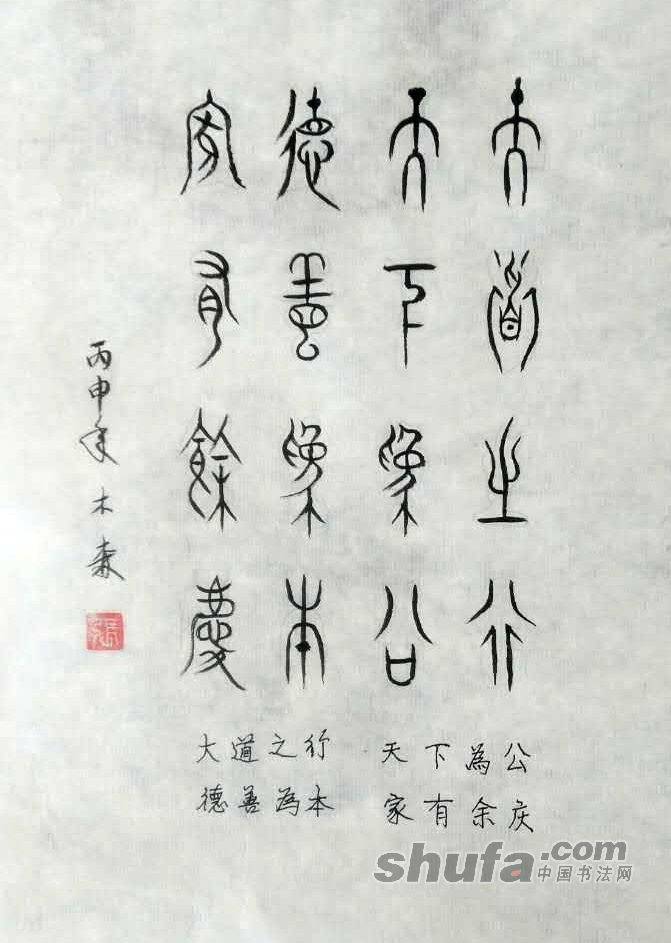 大道之行
天下為公
德善為本
家有餘慶
丙申年 木森
張
大道之行 天下為公
德善為本 家有余庆
shufa.com
中国书法网